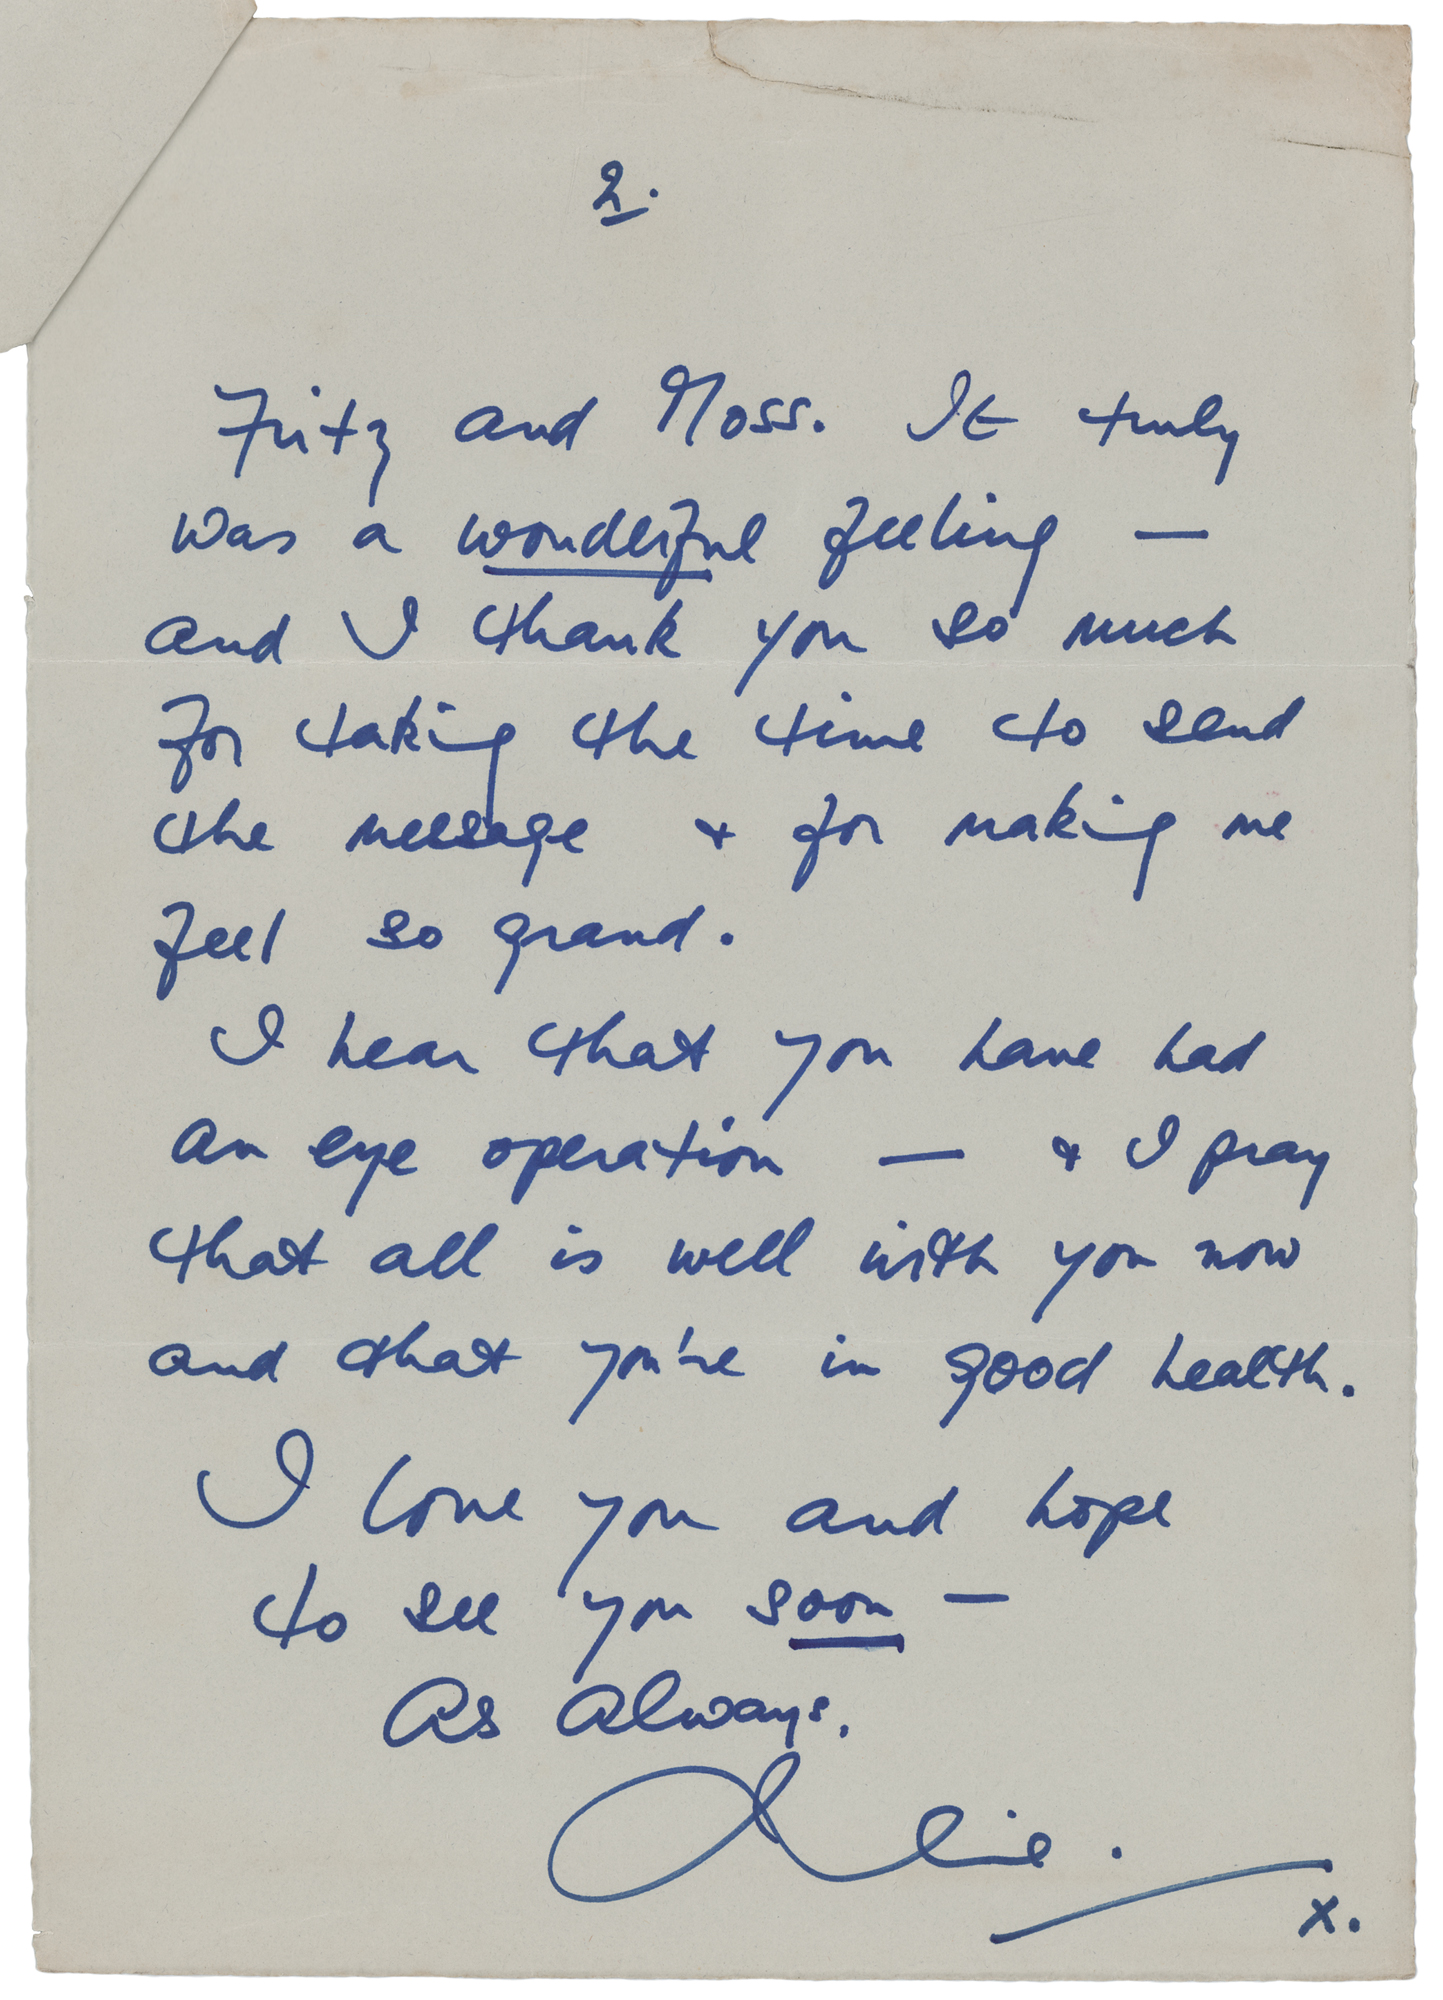 2.
Fritz and Moss. It truly
was a wonderful feeling —
and I thank you so much
for taking the time to send
the message & for making me
feel so grand.
I hear that you have had
an eye operation — & I pray
that all is well with you now
and that you're in good health.
I love you and hope
to see you soon —
As Always.
x.